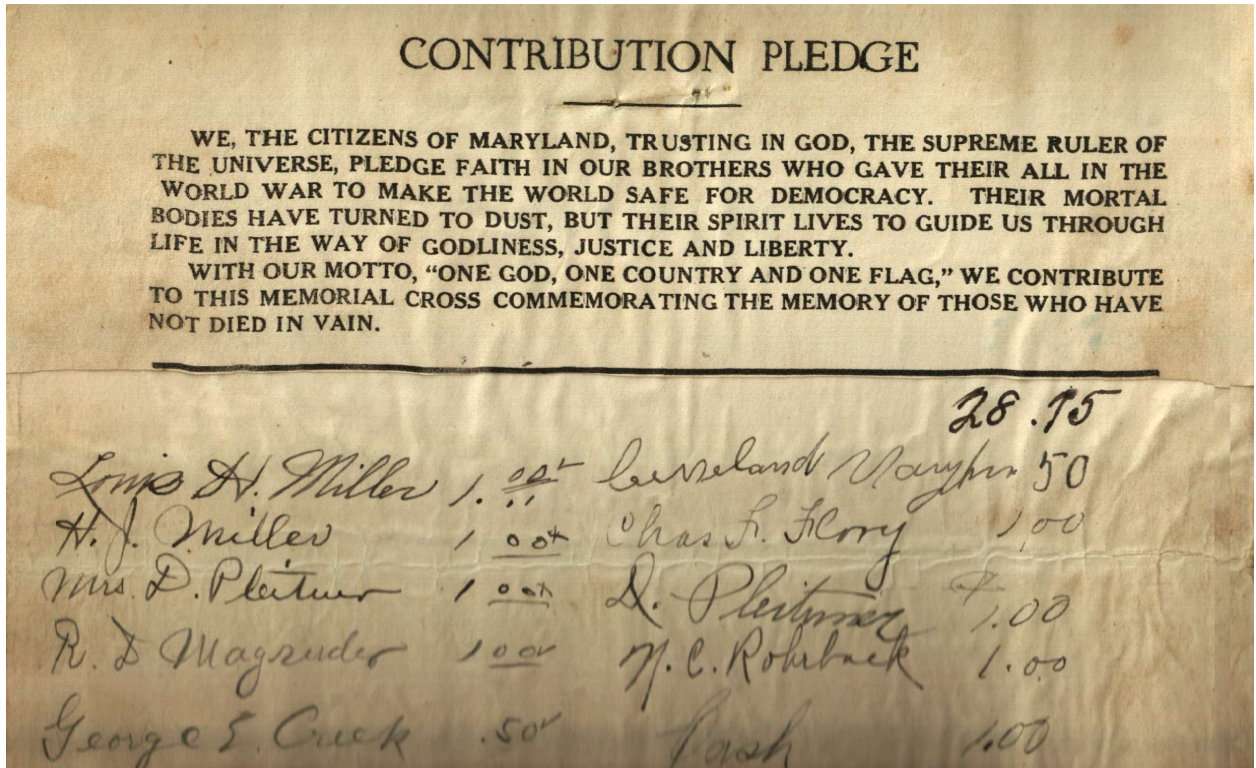 CONTRIBUTION PLEDGE
WE, THE CITIZENS OF MARYLAND, TRUSTING IN GOD, THE SUPREME RULER OF
THE UNIVERSE, PLEDGE FAITH IN OUR BROTHERS WHO GAVE THEIR ALL IN THE
WORLD WAR TO MAKE THE WORLD SAFE FOR DEMOCRACY. THEIR MORTAL
BODIES HAVE TURNED TO DUST, BUT THEIR SPIRIT LIVES TO GUIDE US THROUGH
LIFE IN THE WAY OF GODLINESS, JUSTICE AND LIBERTY.
WITH OUR MOTTO, "ONE GOD, ONE COUNTRY AND ONE FLAG," WE CONTRIBUTE
TO THIS MEMORIAL CROSS COMMEMORATING THE MEMORY OF THOSE WHO HAVE
NOT DIED IN VAIN.
28.75
Louis H. Miller 1.00 50
H. J. Miller 1 00 Chas F. Flory 1 00
Mrs. D. 1 00 D. 1.00
R. D Magruder 1 00 N. C. Rohrback 1.00
George E. Creek .50 Cash 1.00